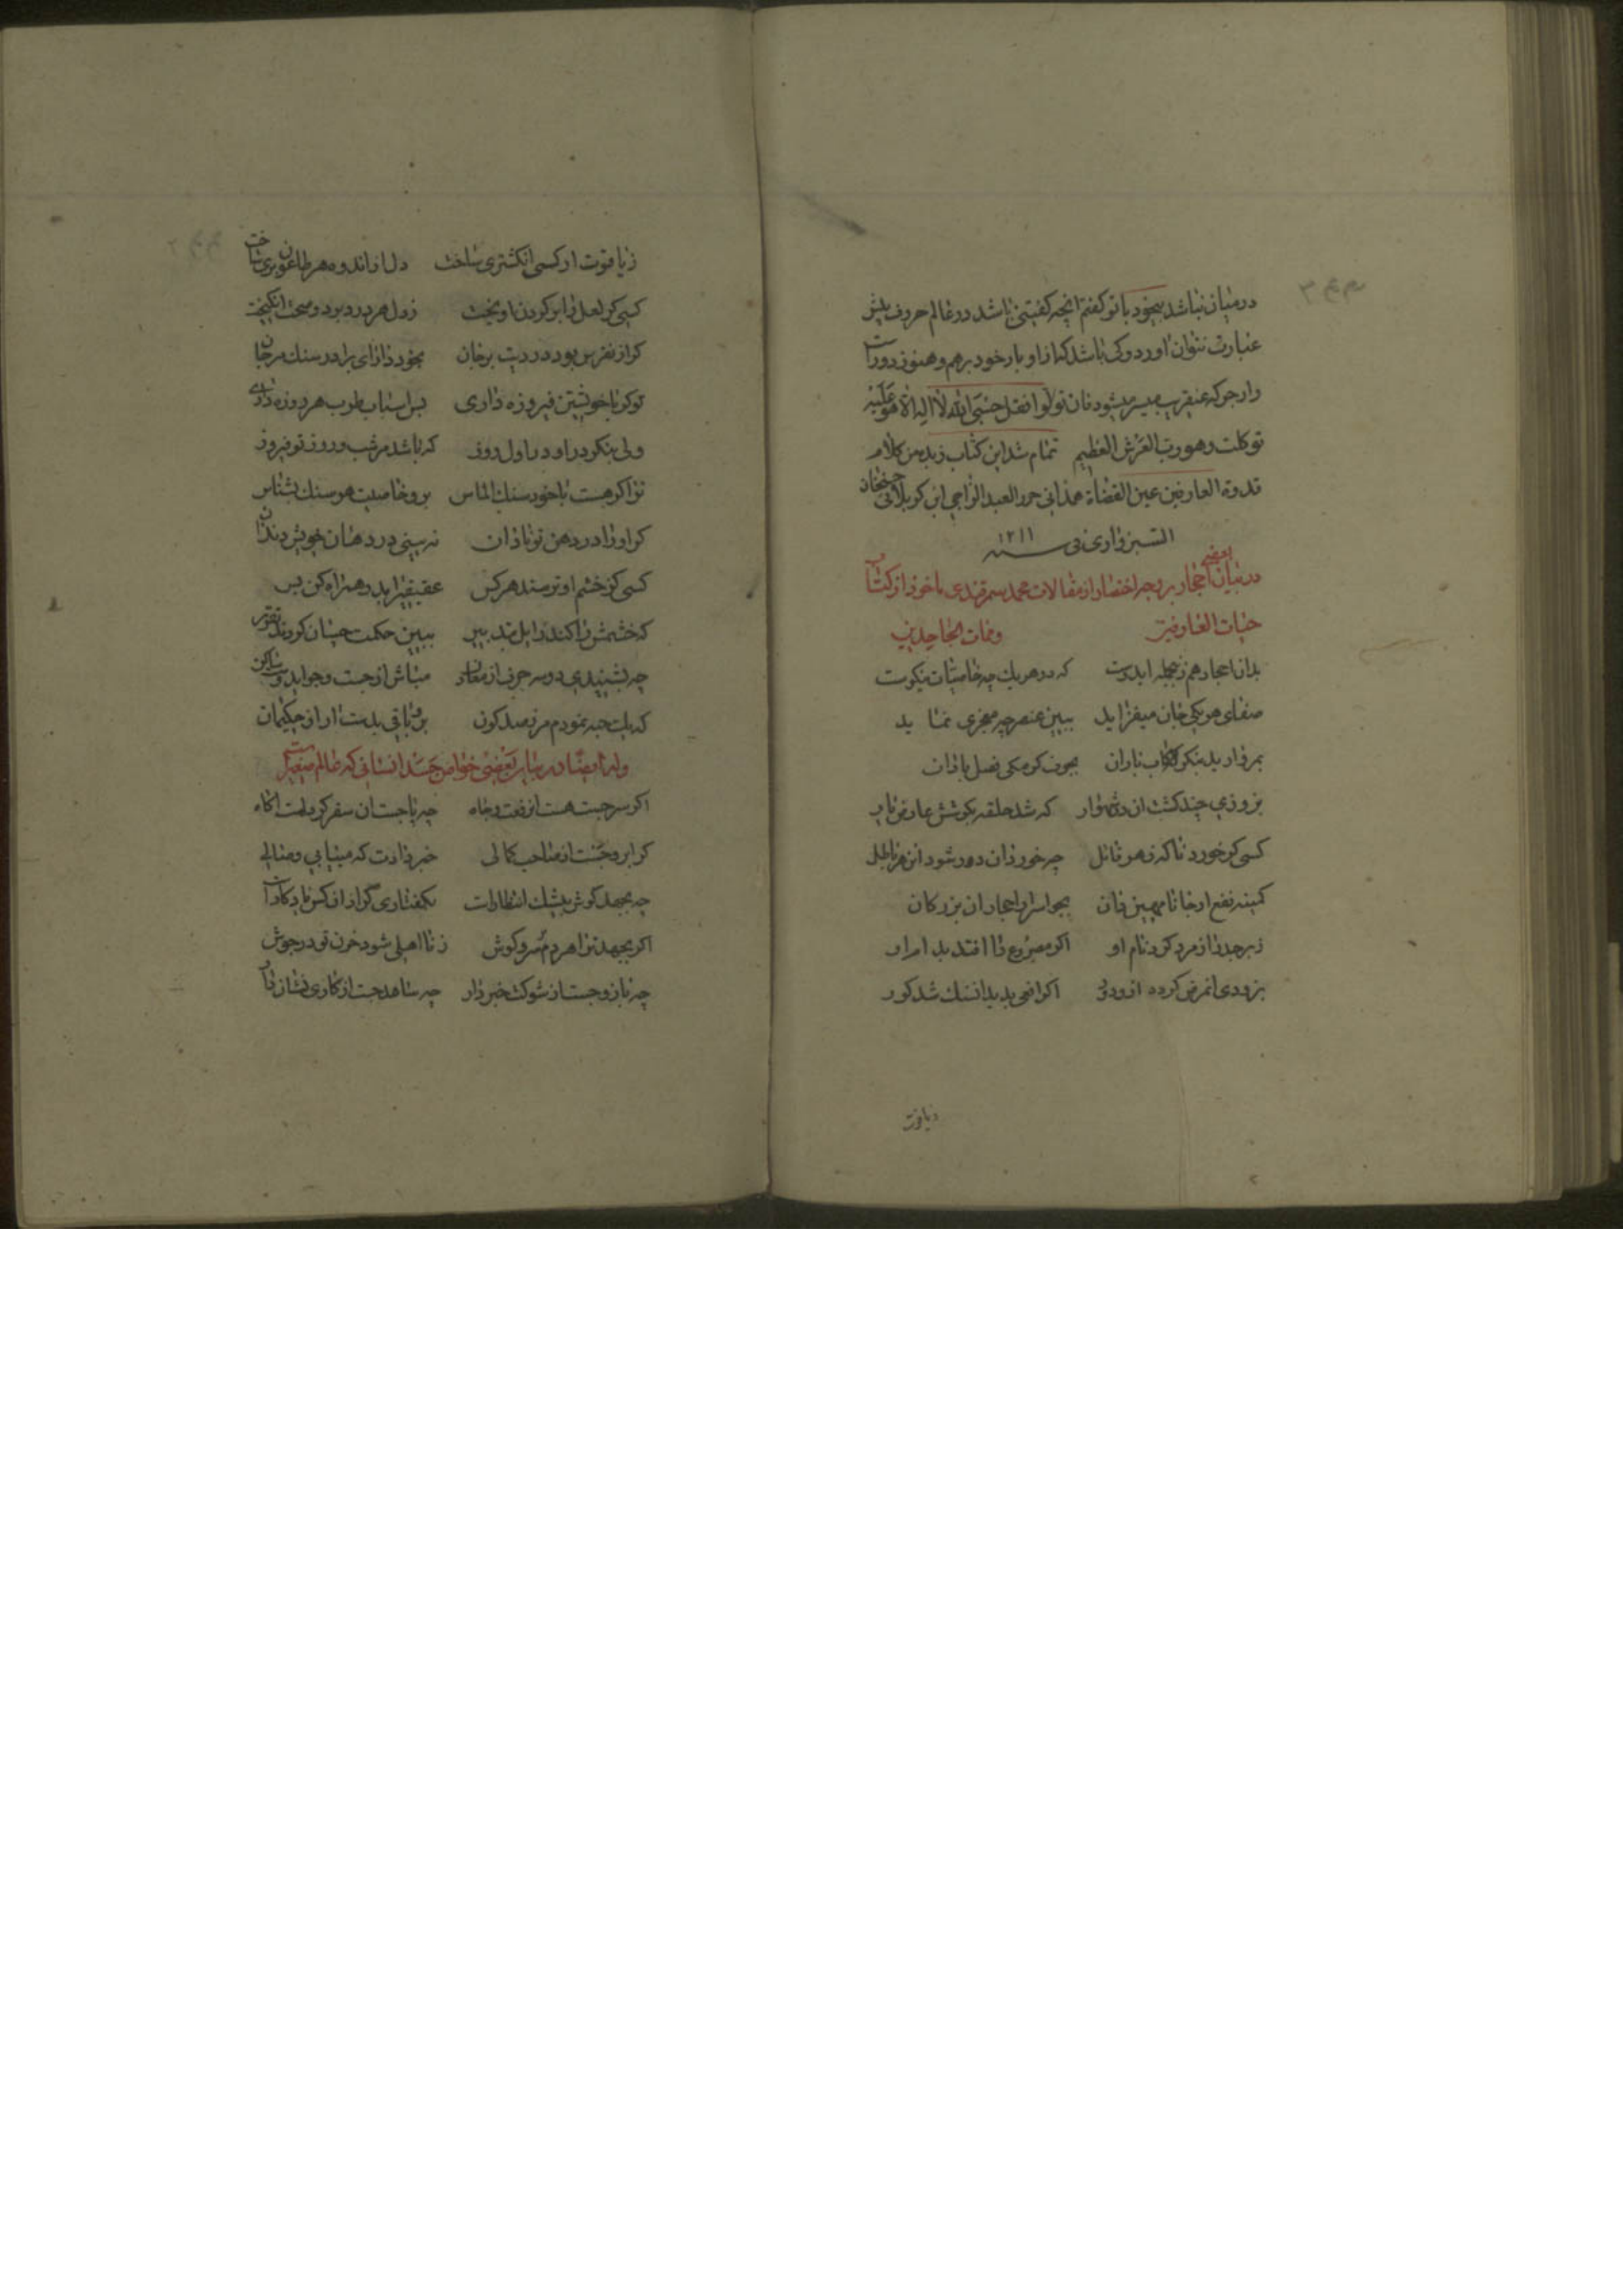 در میان نباشد بیخود با تو گفتم انچه گفتنی باشد در عالم حروف بیش
عبارت نتوان اورد وکی باشد که از او بار خود برهم و هنوز دورات
وارجو که عنقریب میسر میشود فان تولوا فقل حسبی الله لا اله الا هو علیه
توکلت وهو رب العرش العظیم تمام شد این کتاب زبده من کلام
قدوة العارفین عین القضاة همدانی حرره العبد الراجی ابن کربلائی
السبزواری فی سنه ۱۲۱۱
در بیان بعضی احجار بر وجه اختصار از مقالات محمد سمرقندی ماخوذ از کتاب
حیات العارفین وممات الجاحدین
بدان احجار هم زینجمله ایدوست که در هر یک چه خاصیات نیکوست
صفای هر یکی جان میفزاید ببین عنصر چه معجزی نماید
بمروارید بنکر کاب باران بجوف کو مکی فصل باران
بروزی چند کشت ان در شهوار که شد حلقه بکوشش عارض یار
کسی کو خورد ناکه زهر قاتل چه خورد ان دور شود این هر باطل
کمینه نفع او جانا مبین زان بجو اسرار احجار از بزرکان
زبرجد را زمرد کرد نام او اکر مصروع را افتد بد امر او
بزودی انمرض کرده ازو دور اکر افعی بدید ان سنک شد کور
زیاقوت
زیاقوت ار کسی انکشتری ساخت دل از اندوه هر طاعون بری ساخت
کسی کو لعل را بر کردن اویخت زدل هر درد برد و صحت انکیخت
کر از نقرس بود در دست برجان بخود دار ای برادر سنک مرجان
تو کر با خویشتن فیروزه داری بس اسباب طرب هر روزه داری
ولی بنکر در او در اول روز که باشد هر شب و روز تو فیروز
ترا کر هست با خود سنک الماس برو خاصیت هر سنک بشناس
کر او را در دهن تو باز ان نه بینی در دهان خویش دندان
کسی کز خشم او ترسند هر کس عقیقیرا بد و همراه کن بس
که خشمش را کند زایل بتدبیر ببین حکمت چسان کردند تقریر
چه بشنیدی دو سه حرف از معادن مباش از جست وجو ایدوست ساکن
که یک حبه نمودم من زصد کون برو باقی بدست ار از حکیمان
وله ایضا در بیان بعضی خواص جسد انسانی که عالم صغیر است
اکر سر جست هست از رفعت و جاه چه پا جست ان سفر کردنت اکاه
کر ابرو جست از صاحب کمالی خبر دادت که میابی وصالی
چه بجهد کوش بیشک انتظارات بکفتاری کز ان کس یاد کارات
اکر بجهد ترا هر دم سر و کوش زنا اهلی شود خون تو در جوش
چه بازو جست از شوکت خبر دار چه ساعد جست از کاری نشان دار